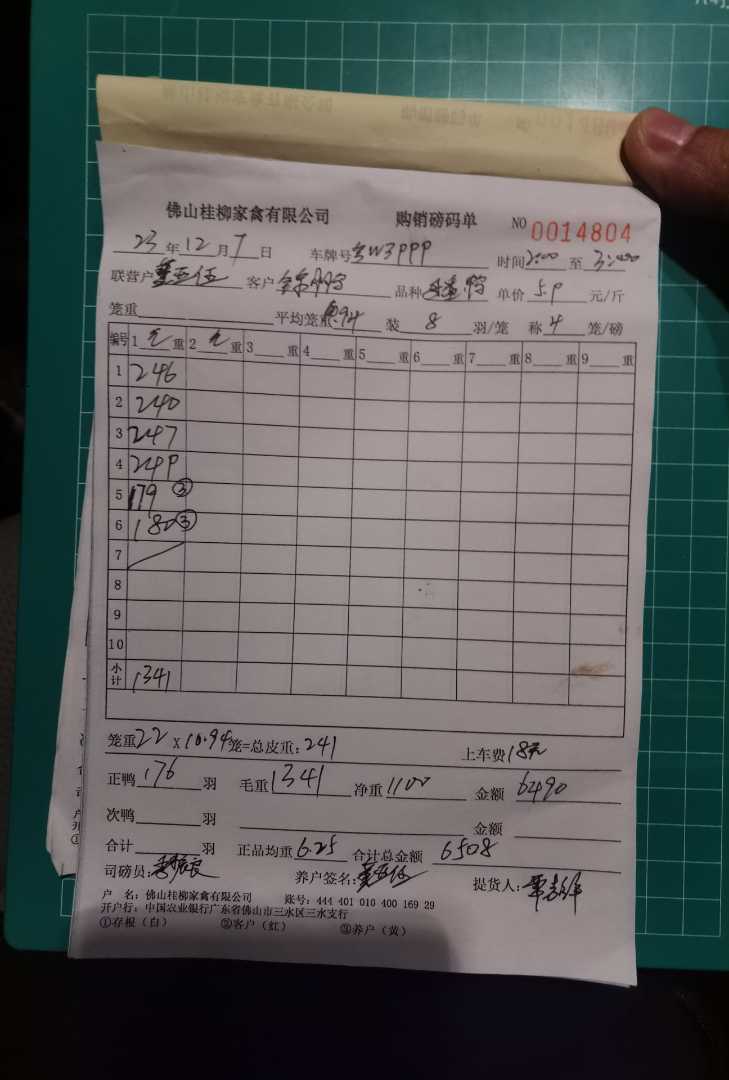 佛山桂柳家禽有限公司 购销磅码单 NO 0014804
23年12月7日 车牌号 W3PPP 时间2:00至3:00
联营户 客户 品种 单价5.9元/斤
笼重 平均笼重 10.94 装8羽/笼 称4笼/磅
编号 1 毛重 2 毛重 3 重 4 重 5 重 6 重 7 重 8 重 9 重
1 246
2 240
3 247
4 249
5 179 ③
6 180 ③
7
8
9
10
小计 1341
笼重22 x 10.94笼=总皮重:241 上车费18元
正鸭176羽 毛重1341 净重1100 金额6490
次鸭 羽 金额
合计 羽 正品均重6.25 合计总金额6508
司磅员: 养户签名: 提货人:
户 名:佛山桂柳家禽有限公司 账号:444 401 010 400 169 29
开户行:中国农业银行广东省佛山市三水区三水支行
①存根(白) ②客户(红) ③养户(黄)